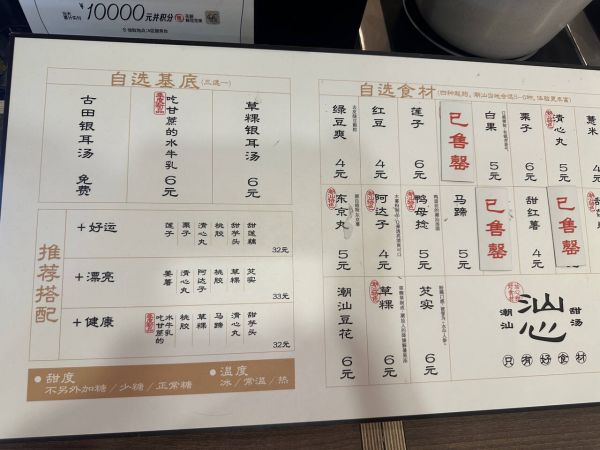 ¥10000元并积分
自选基底(三选一)
古田银耳汤 免费
吃甘蔗的水牛乳 6元
草粿银耳汤 6元
推荐搭配
+好运
莲子
栗子
清心丸
桃胶
甜芋头
甜莲藕
32元
+漂亮
姜薯
清心丸
阿达子
桃胶
草粿
芡实
33元
+健康
吃甘蔗的水牛乳
桃胶
草粿
马蹄
清心丸
甜芋头
32元
• 甜度
不另外加糖 / 少糖 / 正常糖
• 温度
冰 / 常温 / 热
自选食材
绿豆爽 4元
红豆 4元
莲子 6元
已售罄
白果 5元
栗子 6元
清心丸 5元
薏米 4元
东京丸 5元
阿达子 4元
鸭母捻 5元
马蹄 5元
已售罄
甜红薯 4元
已售罄
潮汕豆花 6元
草粿 6元
芡实 6元
潮汕
汕心
甜汤
只有好食材